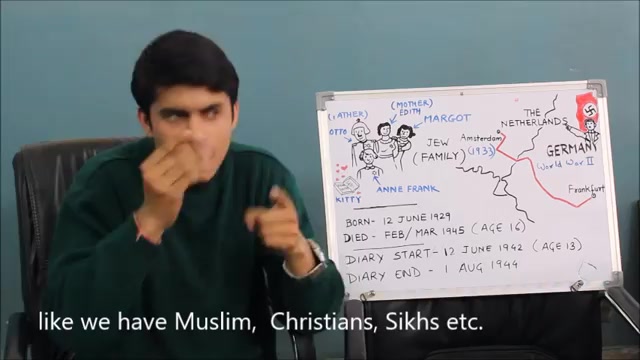 (FATHER)
OTTO
(MOTHER)
EDITH
MARGOT
ANNE FRANK
KITTY
JEW
(FAMILY)
Amsterdam
(1933)
THE
NETHERLANDS
GERMANY
World War II
Frankfurt
BORN- 12 JUNE 1929
DIED- FEB/MAR 1945 (AGE 16)
DIARY START- 12 JUNE 1942 (AGE 13)
DIARY END - 1 AUG 1944
like we have Muslim,  Christians, Sikhs etc.